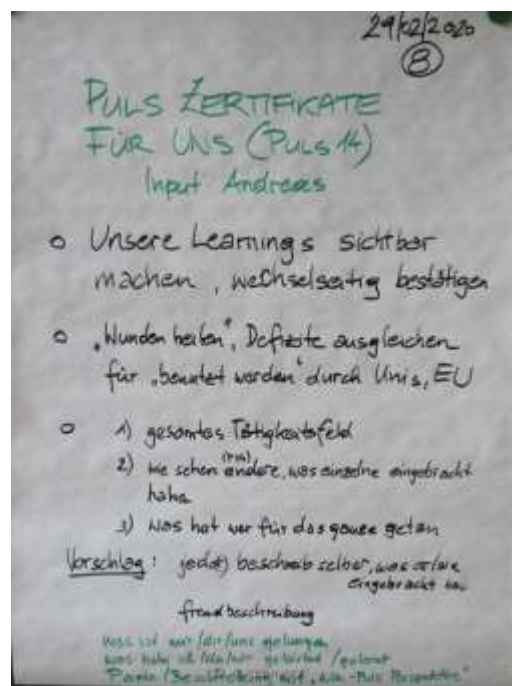 29/02/2020
8
PULS ZERTIFIKATE
FÜR UNS (PULS 14)
Input Andreas
o Unsere Learnings sichtbar
machen, wechselseitig bestätigen
o „Wunden heilen", Defizite ausgleichen
für „benutzt werden" durch Unis, EU
o 1) gesamtes Tätigkeitsfeld
2) wie sehen andere, was einzelne eingebracht
habe
3) was hat wer für das ganze getan
Vorschlag: jede(r) beschreib selber, was er/sie
eingebracht
fremdbeschreibung
was ist mir/dir/uns gelungen
was habe ich/du/wir /gelernt